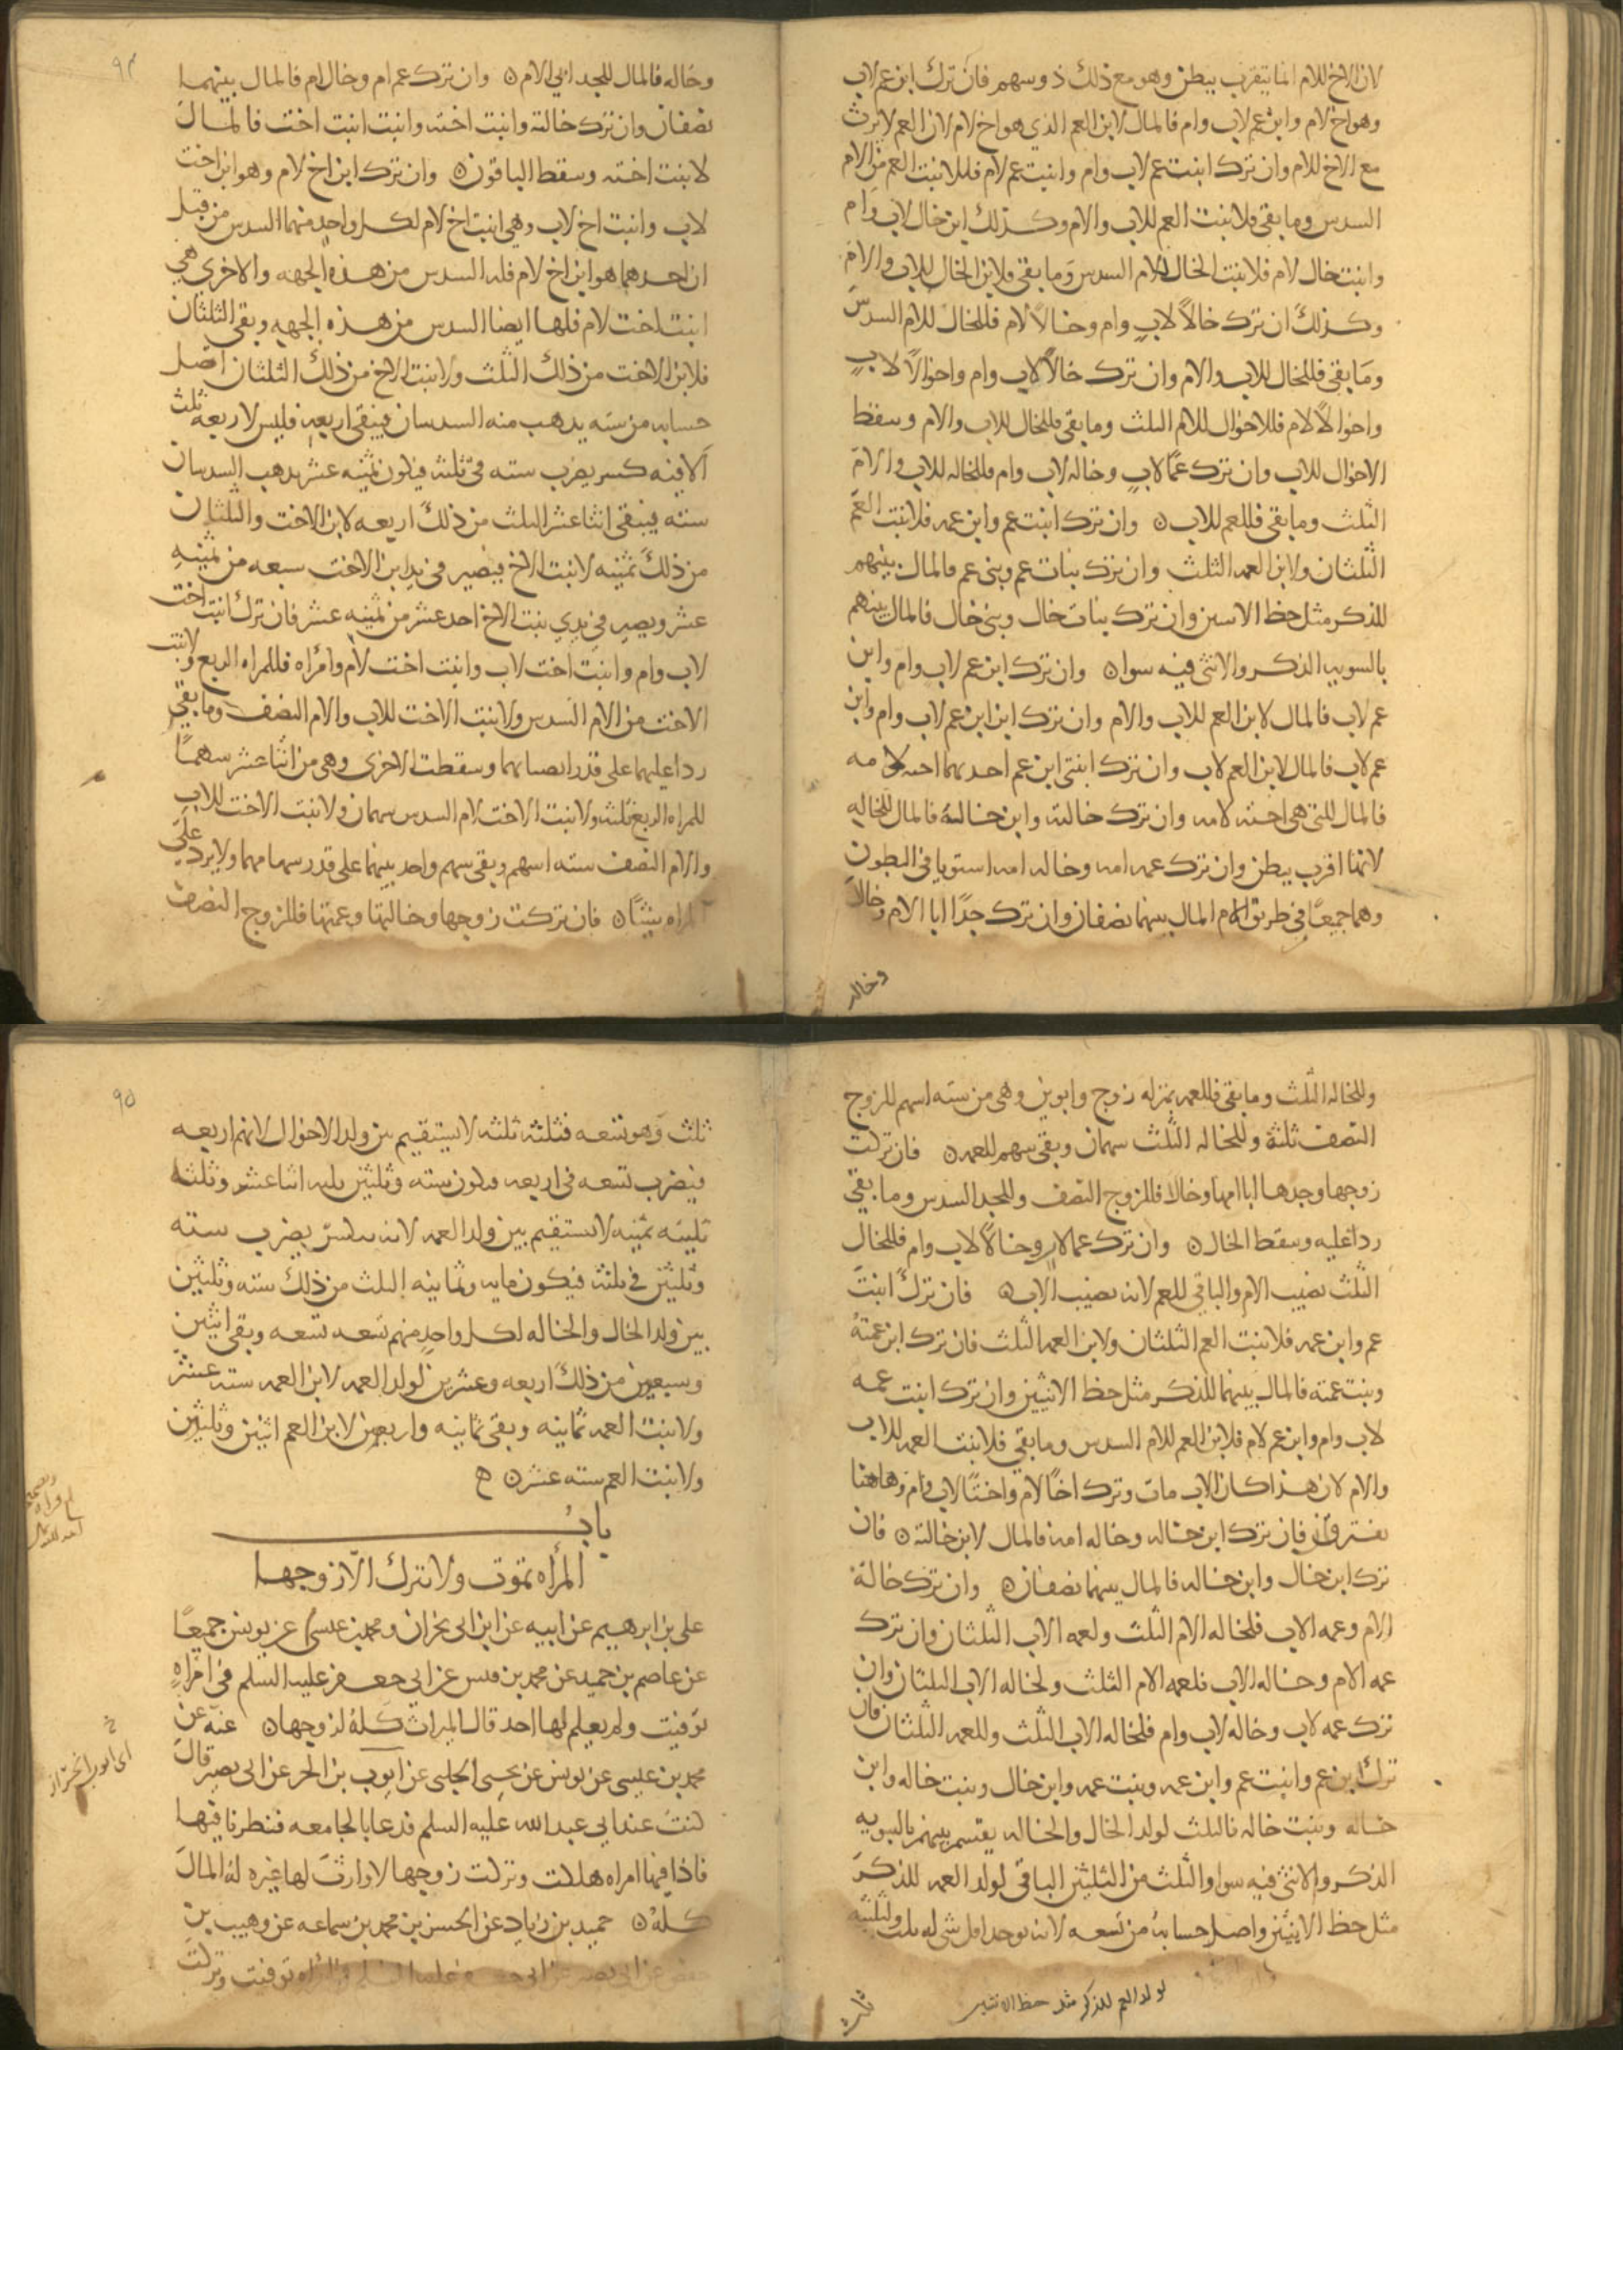 لان الاخ للام انما يتقرب ببطن وهو مع ذلك ذو سهم فان ترك ابن عم لاب
وهو اخ لام وابن عم لاب وام فالمال لابن العم الذي هو اخ لام لان العم لا يرث
مع الاخ للام وان ترك ابنت عم لاب وام وابنت عم لام فللابنت العم من الام
السدس وما بقي فلابنت العم للاب والام وكذلك ابن خال لاب وام
وابنت خال لام فلابنت الخال للام السدس وما بقي فلابن الخال للاب والام
وكذلك ان ترك خالاً لاب وام وخالاً لام فللخال للام السدس
وما بقي فللخال للاب والام وان ترك خالاً لاب وام واخوالاً لاب
واخوالاً لام فللاخوال للام الثلث وما بقي فللخال للاب والام وسقط
الاخوال للاب وان ترك عمًا لاب وخاله لاب وام فللخاله للاب والام
الثلث وما بقي فللعم للاب ن وان ترك ابنت عم وابن عمه فلابنت العم
الثلثان ولابن العمه الثلث وان ترك بنات عم وبني عم فالمال بينهم
للذكر مثل حظ الانثيين وان ترك بنات خال وبني خال فالمال بينهم
بالسويه الذكر والانثى فيه سوا ن وان ترك ابن عم لاب وام وابن
عم لاب فالمال لابن العم للاب والام وان ترك ابن ابن عم لاب وام وابن
عم لاب فالمال لابن العم لاب وان ترك ابنتي ابن عم احديهما اخته لامه
فالمال للتي هي اخته لامه وان ترك خالته وابن خالته فالمال للخاله
لانها اقرب ببطن وان ترك عمه امه وخاله امه استويا في البطون
وهما جميعًا في طريق الام المال بينهما نصفان وان ترك جدًا ابا الام وخالاً
وخاله
٩٤
وخاله فالمال للجد ابي الام ن وان ترك عم ام وخال ام فالمال بينهما
نصفان وان ترك خالته وابنت اخته وابنت ابنت اخت فالمال
لابنت اخته وسقط الباقون ن وان ترك ابن اخ لام وهو ابن اخت
لاب وابنت اخ لاب وهي ابنت اخ لام لكل واحد منهما السدس من قبل
ان احدهما هو ابن اخ لام فله السدس من هذه الجهه والاخرى هي
ابنت اخت لام فلها ايضا السدس من هذه الجهه وبقي الثلثان
فلابن الاخت من ذلك الثلث ولابنت الاخ من ذلك الثلثان اصل
حسابه من سته يذهب منه السدسان فيبقى اربعه فليس لاربعه ثلث
الا فيه كسر يضرب سته في ثلثه فيكون ثمنيه عشر يذهب السدسان
سته فيبقى اثنا عشر الثلث من ذلك اربعه لابن الاخت والثلثان
من ذلك ثمنيه لابنت الاخ فيصير في يد ابن الاخت سبعه من ثمنيه
عشر ويصير في يدي بنت الاخ احد عشر من ثمنيه عشر فان ترك ابنت اخت
لاب وام وابنت اخت لاب وابنت اخت لام وامراه فللمراه الربع ولابنت
الاخت من الام السدس ولابنت الاخت للاب والام النصف وما بقي
رد عليهما على قدر انصبايهما وسقطت الاخرى وهي من اثنا عشر سهمًا
للمراه الربع ثلثه ولابنت الاخت لام السدس سهمان ولابنت الاخت للاب
والام النصف سته اسهم وبقي سهم واحد بينهما على قدر سهامهما ولا يرد على
المراه شيئًا ن فان تركت زوجها وخالتها وعمتها فللزوج النصف
وللخاله الثلث وما بقي فللعمه بمنزله زوج وابوين وهي من سته اسهم للزوج
النصف ثلثه وللخاله الثلث سهمان وبقي سهم للعمه ن فان تركت
زوجها وجدها ابا امها وخالا فللزوج النصف وللجد السدس وما بقي
رد عليه وسقط الخال ن وان ترك عما لاب وخالاً لاب وام فللخال
الثلث نصيب الام والباقي للعم لانه نصيب الاب ن فان ترك ابنت
عم وابن عمه فلابنت العم الثلثان ولابن العمه الثلث فان ترك ابن عمته
وبنت عمته فالمال بينهما للذكر مثل حظ الانثيين وان ترك ابنت عمه
لاب وام وابن عم لام فلابن العم للام السدس وما بقي فلابنت العمه للاب
والام لان هذا كان الاب مات وترك اخًا لام واختًا لاب وام وهاهنا
يفترقان فان ترك ابن خاله وخاله امه فالمال لابن خالته ن فان
ترك ابن خال وابن خاله فالمال بينهما نصفان ن وان ترك خالة
الام وعمه الاب فلخاله الام الثلث ولعمه الاب الثلثان وان ترك
عمه الام وخاله الاب فلعمه الام الثلث ولخاله الاب الثلثان وان
ترك عمه لاب وخاله لاب وام فلخاله الاب الثلث وللعمه الثلثان فان
ترك ابن عم وابنت عم وابن عمه وبنت عمه وابن خال وبنت خاله وابن
خاله وبنت خاله فالثلث لولد الخال والخاله يقتسم بينهم بالسويه
الذكر والانثى فيه سوا والثلث من الثلثين الباقي لولد العمه للذكر
مثل حظ الانثيين واصل حسابه من تسعه لانه يوخذ اقل شي له ثلث ولثلثيه
لولد العم للذكر مثل حظ الانثيين
ثلث
٩٥
ثلث وهو تسعه فثلثه ثلثه لا يستقيم بين ولد الاخوال لانهم اربعه
فيضرب تسعه في اربعه فيكون سته وثلثين ثلثه اثنا عشر وثلثه
ثلثيه ثمنيه لا يستقيم بين ولد العمه لانه ينكسر يضرب سته
وثلثين في ثلثه فيكون مايه وثمانيه الثلث من ذلك سته وثلثين
بين ولد الخال والخاله لكل واحد منهم تسعه تسعه وبقي اثنين
وسبعين من ذلك اربعه وعشرين لولد العمه لابن العمه سته عشر
ولابنت العمه ثمانيه وبقي ثمانيه واربعين لابن العم اثنين وثلثين
ولابنت العم سته عشر ن ه
باب
المرأه تموت ولا تترك الّا زوجها
علي بن ابرهيم عن ابيه عن ابن ابي نجران ومحمد بن عيسى عن يونس جميعًا
عن عاصم بن حميد عن محمد بن قيس عن ابي جعفر عليه السلم في امراه
توفيت ولم يعلم لها احد قال الميراث كله لزوجها ن عنه عن
محمد بن عيسى عن يونس عن يحيى الحلبي عن ايوب بن الحر عن ابي بصير قال
كنت عند ابي عبد الله عليه السلم فدعا بالجامعه فنظرنا فيها
فاذا فيها امراه هلكت وتركت زوجها لا وارث لها غيره له المال
كله ن حميد بن زياد عن الحسن بن محمد بن سماعه عن وهيب بن
حفص عن ابي بصير عن ابي جعفر عليه السلم في امراه توفيت وتركت
خ
ابي ايوب الخزاز